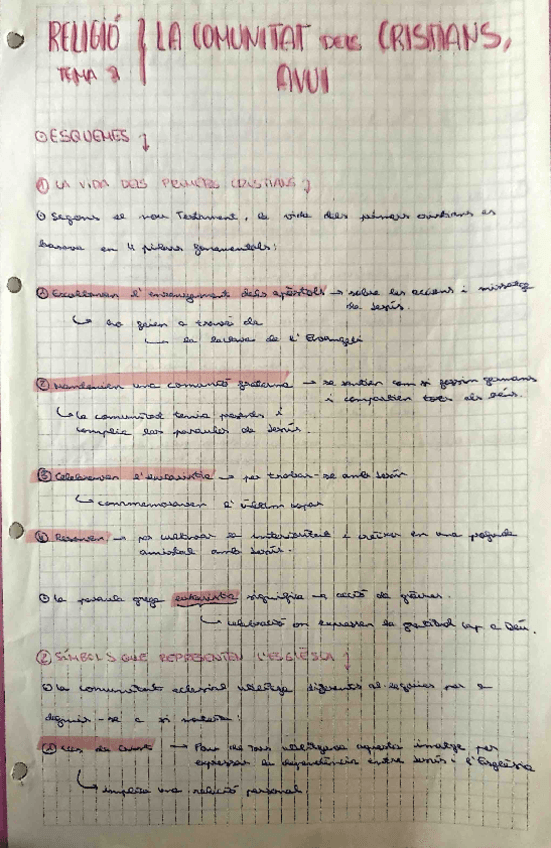 RELIGIÓ LA COMUNITAT DELS CRISTIANS,
TEMA AVUI
ESQUEMES
① LA VIDA DELS PRIMERS CRISTIANS
Segons el nou Testament, la vida dels primers cristians es
basava en 4 pilars fonamentals:
① Escoltaven l'ensenyament dels apòstols → sobre les accions i missatge
de Jesús.
ho feien a través de
la lectura de l'Evangeli
② Mantenien una comunió fraterna → se sentien com si fossin germans
i compartien tots els béns.
la comunitat tenia i
complia les paraules de Jesús.
③ Celebraven l'eucaristia → per trobar-se amb Jesús
commemoraven l'últim sopar
④ Resaven → per cultivar la interioritat i créixer en una profunda
amistat amb Jesús.
la paraula grega eukaristia significa → acció de gràcies.
celebració on expressen la gratitud cap a Déu.
② SÍMBOLS QUE REPRESENTEN L'ESGLÉSIA
la comunitat eclesial utilitza diferents al·legories per a
definir-se a si mateixa:
① Cos de Crist → Pau de Tars utilitzava aquesta imatge per
expressar la dependència entre Jesús i l'Església
implica una relació personal